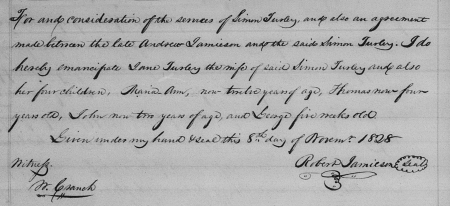 For and consideration of the services of Simon Turley and also an agreement
made between the late Andrew Jamieson and the said Simon Turley. I do
hereby emancipate Jane Turley the wife of said Simon Turley and also
her four children, Maria Ann, now twelve years of age, Thomas now four
years old, John now two years of age, and George five weeks old
Given under my hand & seal this 8th day of Novemr. 1828
Witness
Robert Jamieson Seal
W. Cranch